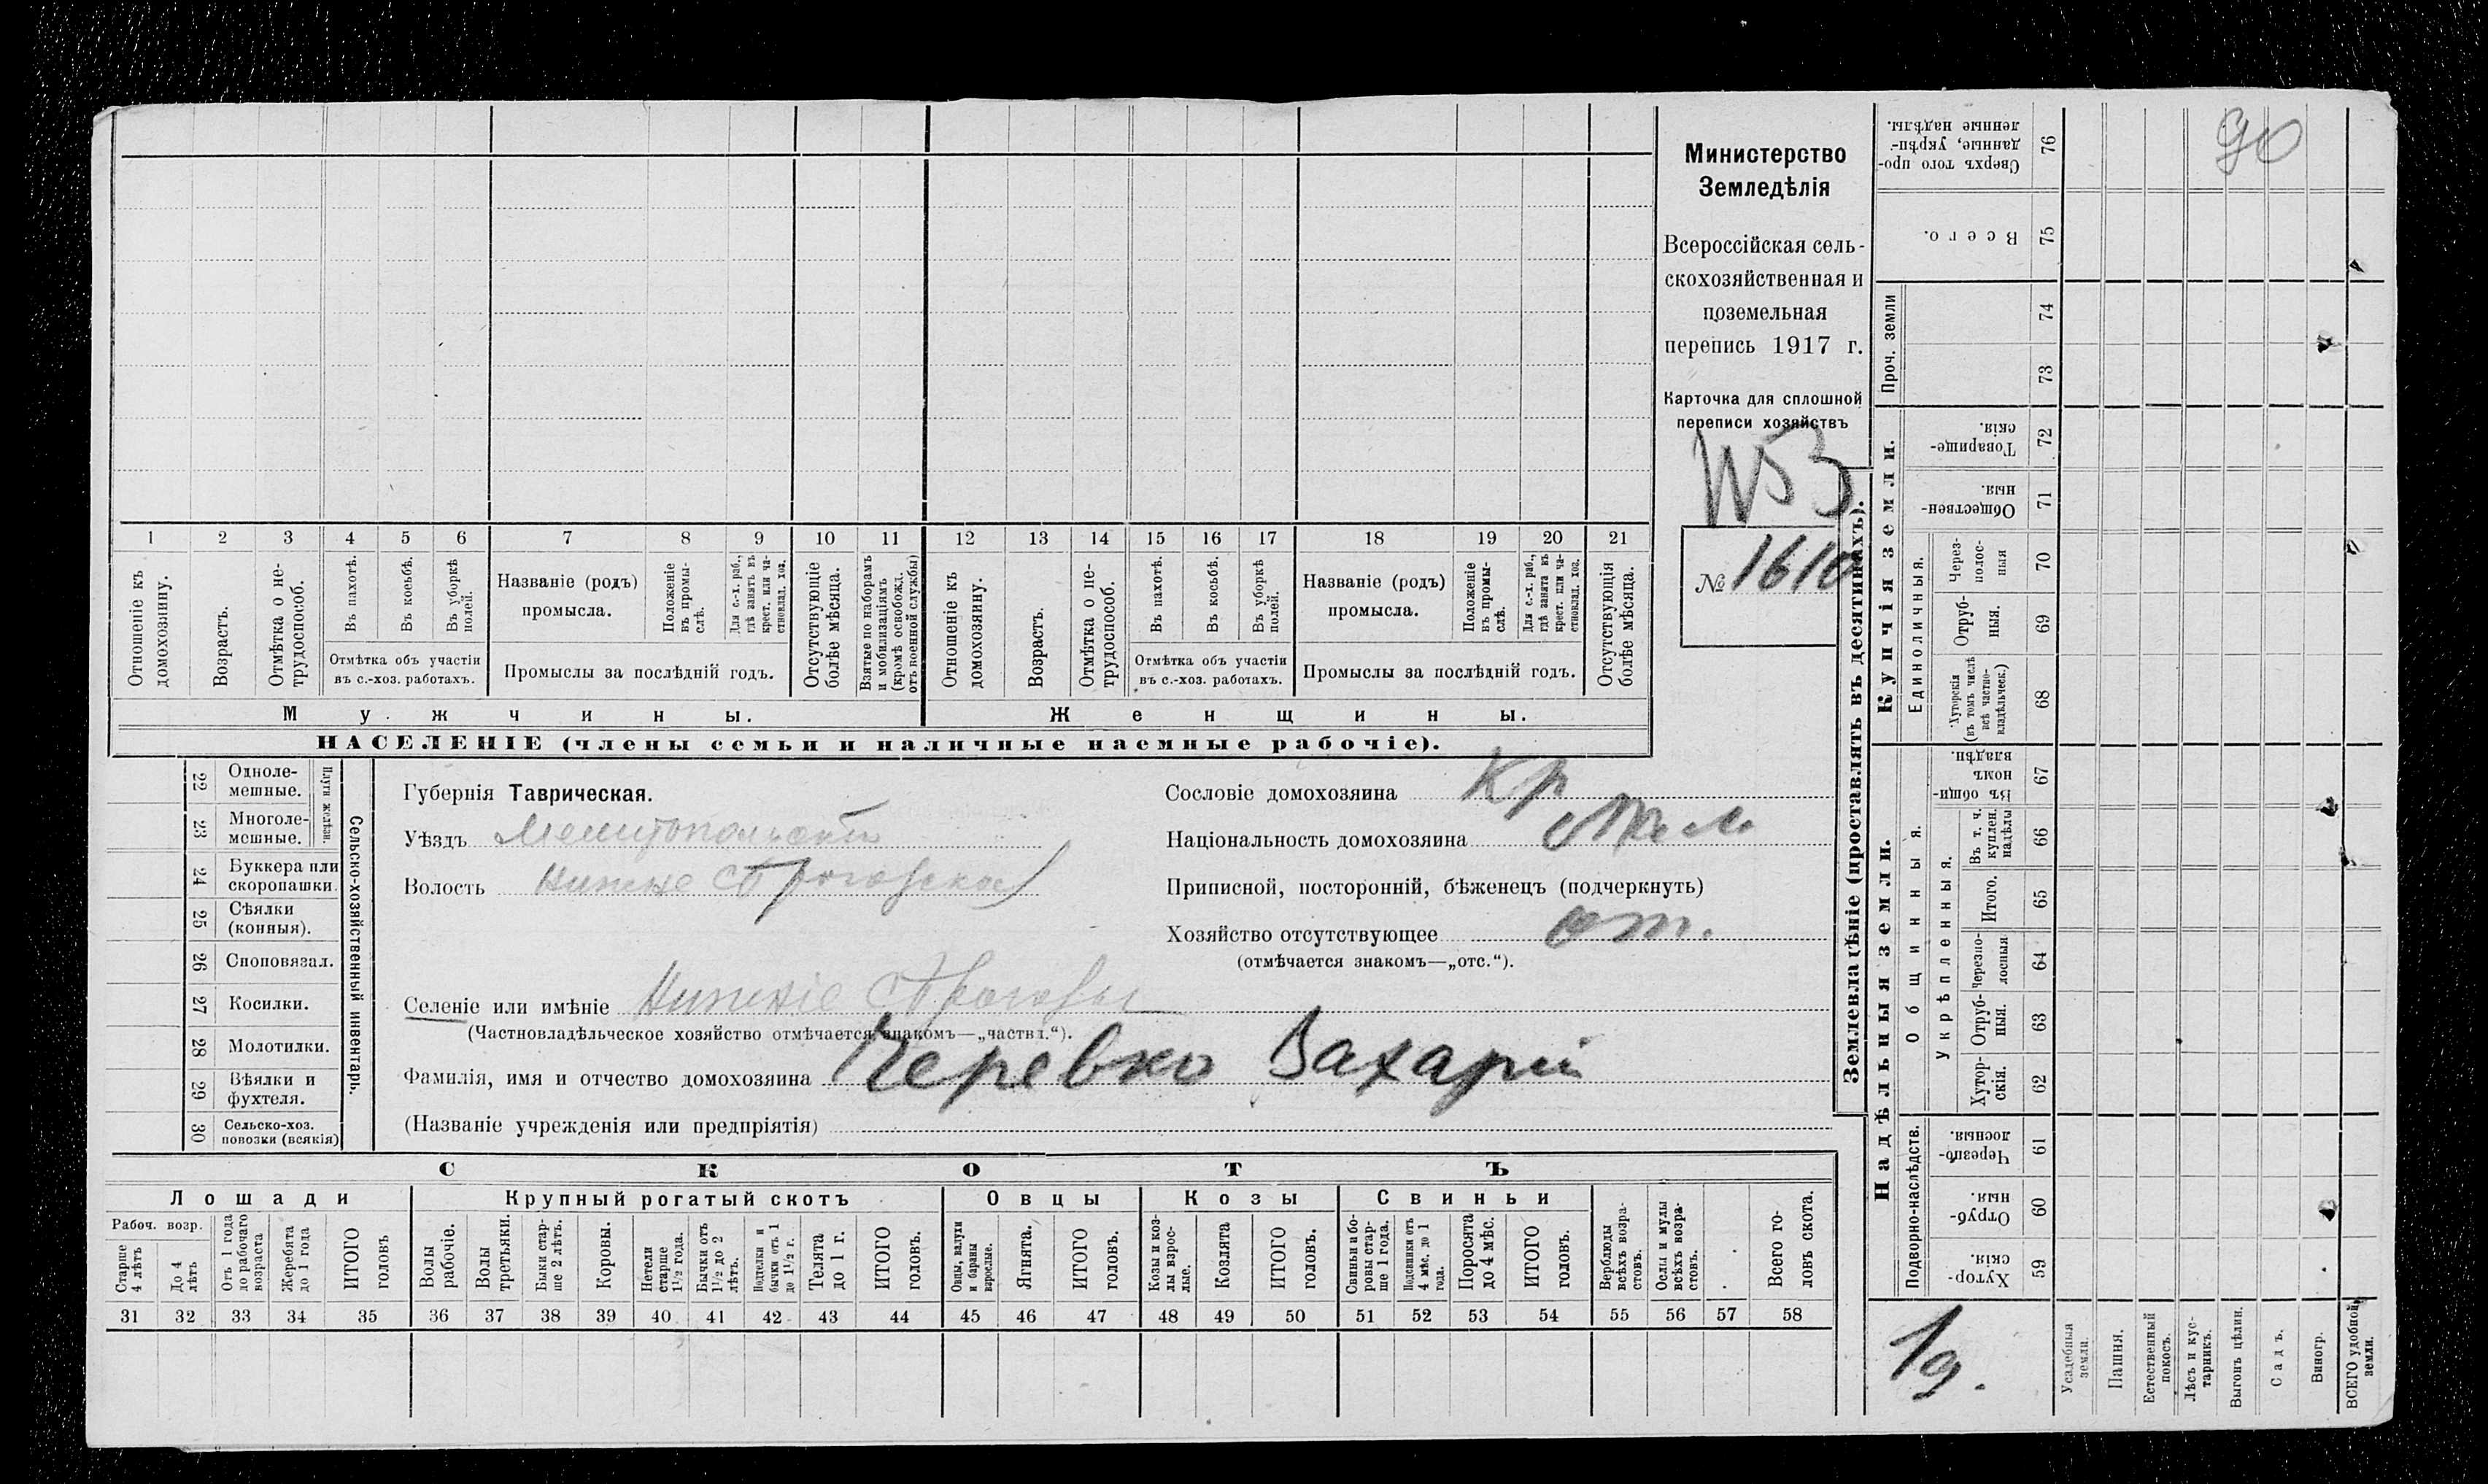 Министерство
Земледѣлія
Всероссійская сель-
скохозяйственная и
поземельная
перепись 1917 г.
Карточка для сплошной
переписи хозяйствъ
№ 1610
90
1 2 3 4 5 6 7 8 9 10 11 12 13 14 15 16 17 18 19 20 21
Отношеніе къ домохозяину.
Возрастъ.
Отмѣтка о не-трудоспособ.
Въ пахотѣ.
Въ косьбѣ.
Въ уборкѣ полей.
Отмѣтка объ участіи
въ с.-хоз. работахъ.
Названіе (родъ)
промысла.
Положеніе въ промы-слѣ.
Для с.-х. раб., гдѣ занятъ въ крест. или ча-стновлад. хоз.
Промыслы за послѣдній годъ.
Отсутствующіе болѣе мѣсяца.
Взятые по наборамъ и мобилизаціямъ (кромѣ освобожд. отъ военной службы)
Отношеніе къ домохозяину.
Возрастъ.
Отмѣтка о не-трудоспособ.
Въ пахотѣ.
Въ косьбѣ.
Въ уборкѣ полей.
Отмѣтка объ участіи
въ с.-хоз. работахъ.
Названіе (родъ)
промысла.
Положеніе въ промы-слѣ.
Для с.-х. раб., гдѣ занята въ крест. или ча-стновлад. хоз.
Промыслы за послѣдній годъ.
Отсутствующія болѣе мѣсяца.
Мужчины.
Женщины.
НАСЕЛЕНІЕ (члены семьи и наличные наемные рабочіе).
Сельско-хозяйственный инвентарь.
Плуги желѣзн.
22 Одноле-мешные.
23 Многоле-мешные.
24 Буккера или скоропашки.
25 Сѣялки (конныя).
26 Споповязал.
27 Косилки.
28 Молотилки.
29 Вѣялки и фухтеля.
30 Сельско-хоз. повозки (всякія)
Губернія Таврическая.
Уѣздъ Мелитопольскій
Волость Нижне Сѣрогозская
Сословіе домохозяина Кр
Національность домохозяина
Приписной, посторонній, бѣженецъ (подчеркнуть)
Хозяйство отсутствующее
(отмѣчается знакомъ—„отс.“).
Селеніе или имѣніе Нижніе Сѣрогозы
(Частновладѣльческое хозяйство отмѣчается знакомъ—„частвл.“).
Фамилія, имя и отчество домохозяина Черевко Захарій
(Названіе учрежденія или предпріятія)
СКОТЪ
Лошади
Крупный рогатый скотъ
Овцы
Козы
Свиньи
Рабоч. возр.
Старше 4 лѣтъ
До 4 лѣтъ
Отъ 1 года до рабочаго возраста
Жеребята до 1 года
ИТОГО головъ
Волы рабочіе.
Волы третьяки.
Быки стар-ше 2 лѣтъ.
Коровы.
Нетели старше 1½ года.
Бычки отъ 1½ до 2 лѣтъ.
Подтелки и бычки отъ 1 до 1½ г.
Телята до 1 г.
ИТОГО головъ.
Овцы, валухи и бараны взрослые.
Ягнята.
ИТОГО головъ.
Козы и коз-лы взрос-лые.
Козлята
ИТОГО головъ.
Свиньи и бо-ровы стар-ше 1 года.
Подсвинки отъ 4 мѣс. до 1 года.
Поросята до 4 мѣс.
ИТОГО головъ.
Верблюды всѣхъ возра-стовъ.
Ослы и мулы всѣхъ возра-стовъ.
Всего го-ловъ скота.
31 32 33 34 35 36 37 38 39 40 41 42 43 44 45 46 47 48 49 50 51 52 53 54 55 56 57 58
Землевладѣніе (проставлять въ десятинахъ).
Купчія земли.
Надѣльныя земли.
Сверхъ того про-данные, укрѣп-ленные надѣлы. 76
Всего. 75
Проч. земли
74
73
Товарище-скія. 72
Обществен-ныя. 71
Единоличныя.
Через-полос-ныя 70
Отруб-ныя. 69
Хуторскія (въ томъ числѣ всѣ частно-владѣльческ.) 68
Общинныя.
Въ общи-номъ владѣн. 67
Укрѣпленныя.
Въ т. ч. куплен. надѣлы 66
Итого. 65
Черезпо-лосныя 64
Отруб-ныя. 63
Хутор-скія. 62
Подворно-наслѣдств.
Черезпо-лосныя. 61
Отруб-ныя. 60
Хутор-скія. 59
19.
Усадебныя земли.
Пашня.
Естественный покосъ.
Лѣсъ и кус-тарникъ.
Выгонъ цѣлин.
Садъ.
Виногр.
ВСЕГО удобной земли.